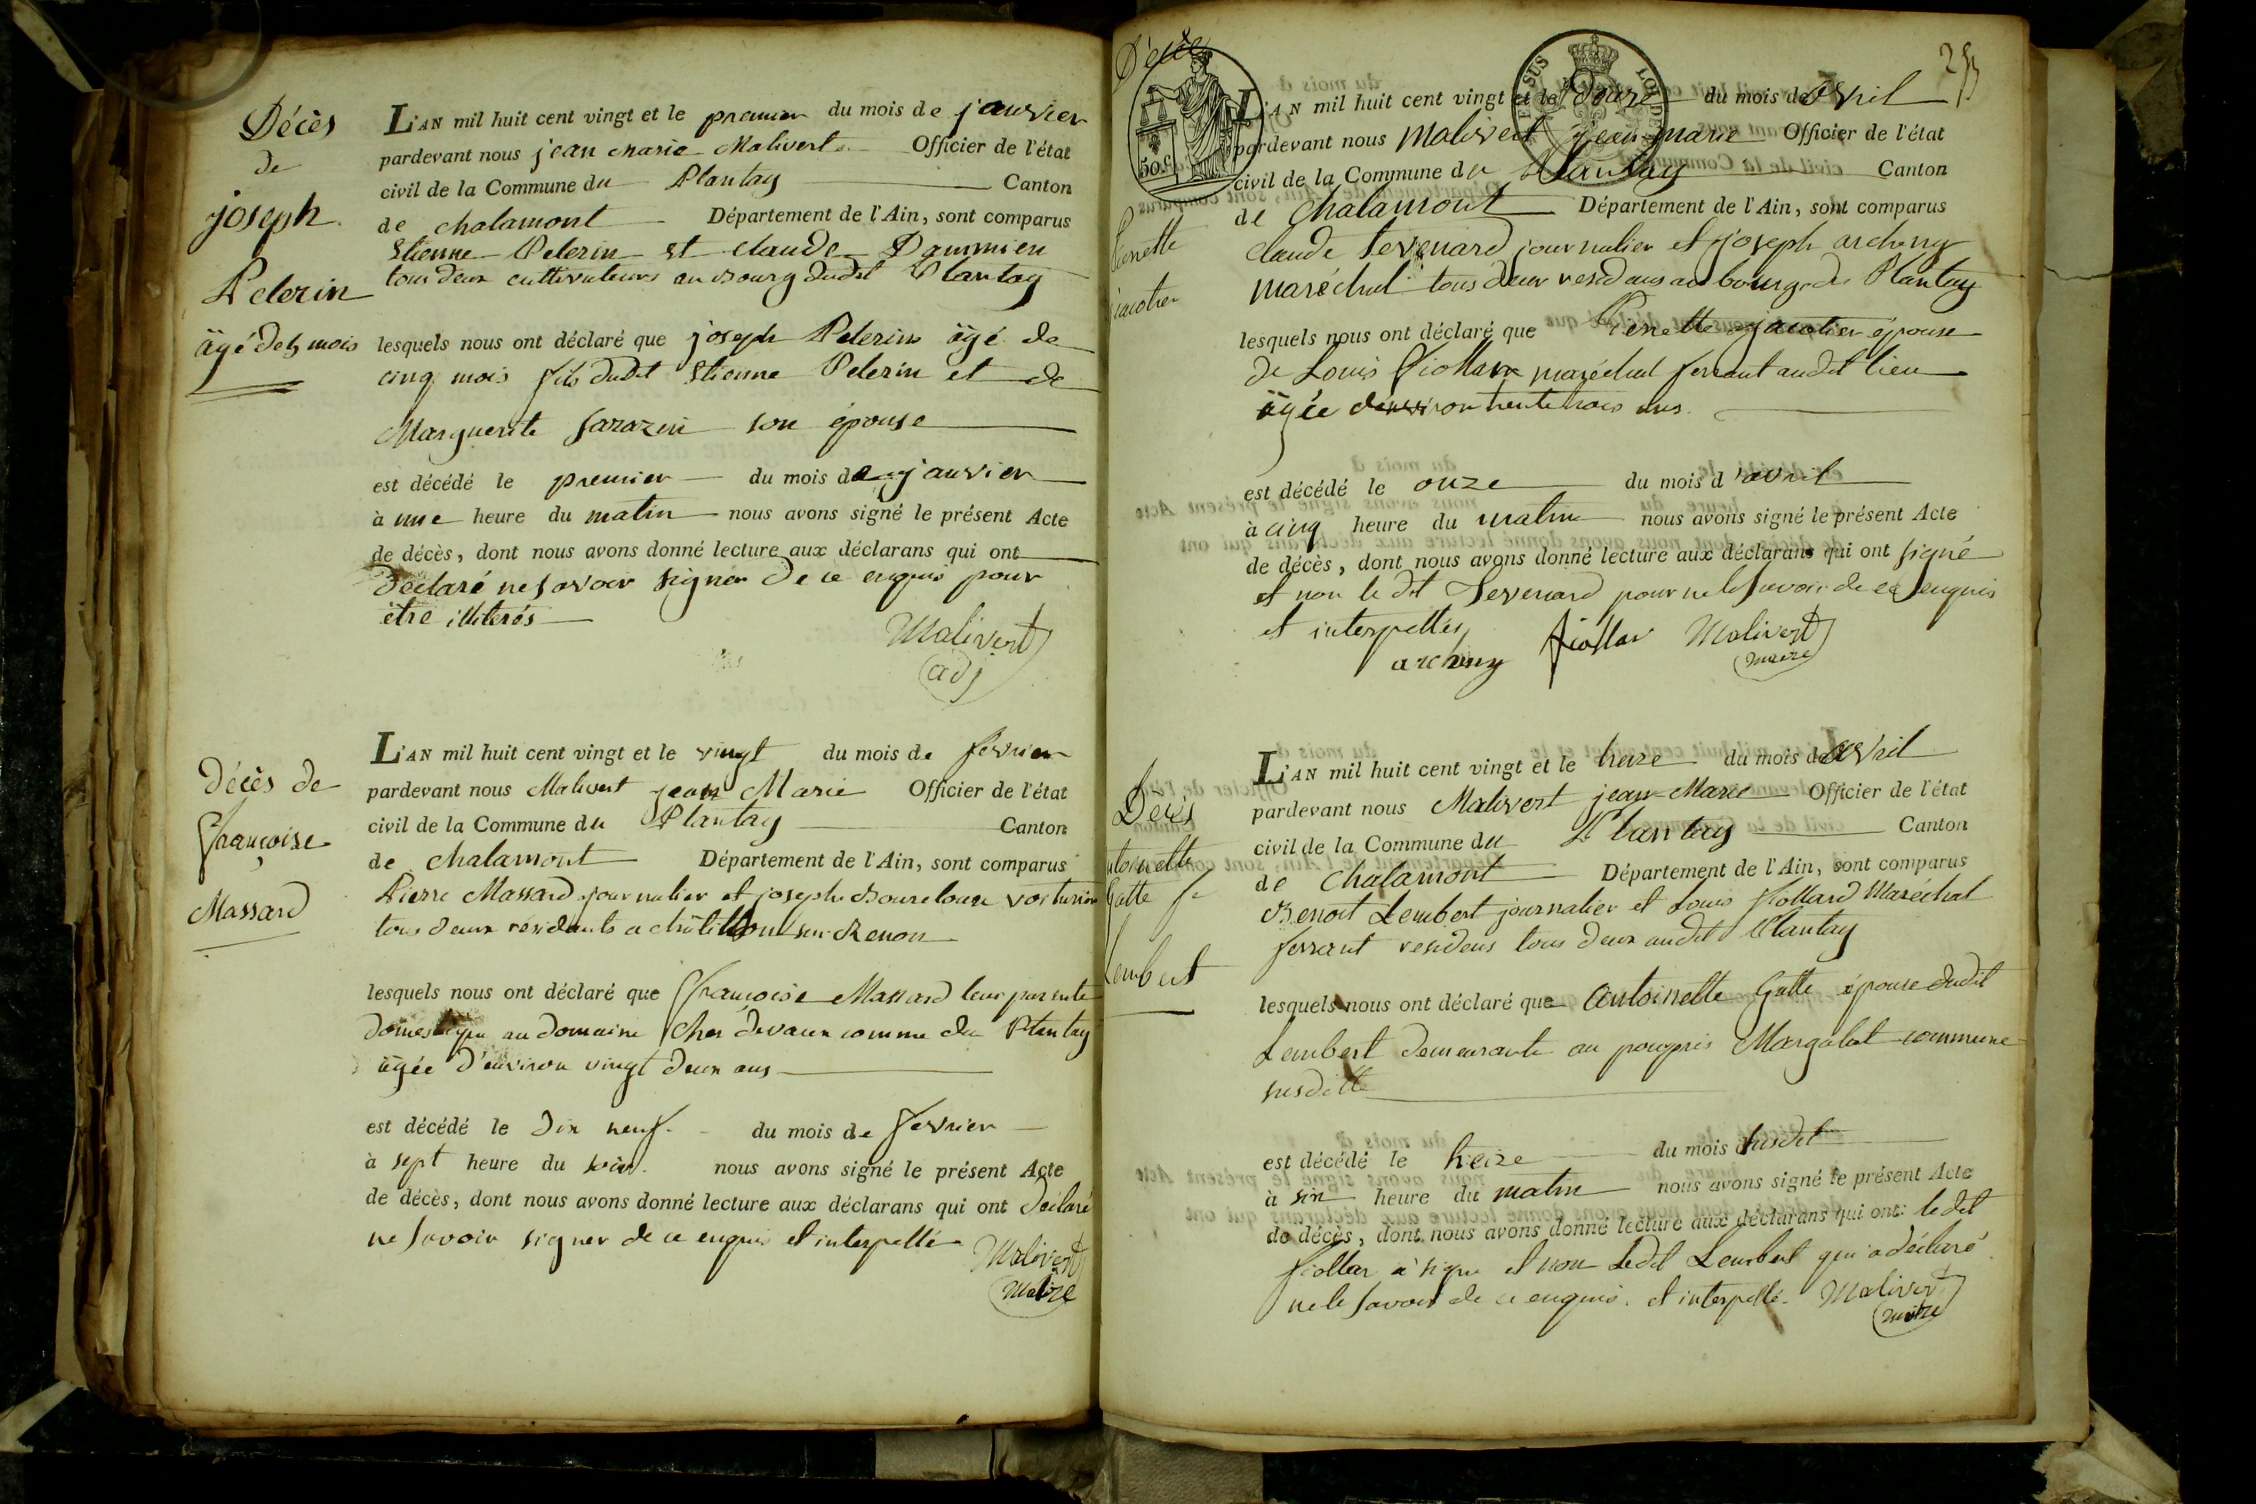 Décès
de
joseph
Pelerin
âgé de 5 mois
L'AN mil huit cent vingt et le premier du mois de janvier
pardevant nous jean marie Malivert Officier de l'état
civil de la Commune du Plantay Canton
de chalamont Département de l'Ain, sont comparus
Etienne Pelerin et claude Dammien
tous deux cultivateurs au bourg dudit Plantay
lesquels nous ont déclaré que joseph Pelerin âgé de
cinq mois fils dudit Etienne Pelerin et de
Marguerite Sarazin son épouse
est décédé le premier du mois de janvier
à une heure du matin nous avons signé le présent Acte
de décès, dont nous avons donné lecture aux déclarans qui ont
déclaré ne savoir signer de ce enquis pour
être illiterés
Malivert
adj
Décès de
françoise
Massard
L'AN mil huit cent vingt et le vingt du mois de fevrier
pardevant nous Malivert jean Marie Officier de l'état
civil de la Commune du Plantay Canton
de chalamont Département de l'Ain, sont comparus
Pierre Massard journalier et joseph voiturier
tous deux résidants a châtillon sur Renon
lesquels nous ont déclaré que françoise Massard leur parente
domestique au domaine chez devaux comme du Plantay
âgée d'environ vingt deux ans
est décédé le dix neuf du mois de fevrier
à sept heure du soir nous avons signé le présent Acte
de décès, dont nous avons donné lecture aux déclarans qui ont déclaré
ne savoir signer de ce enquis et interpellé
Malivert
maire
Décè
50 c.
SUS LOI DE
Pierrette
jacotier
L'AN mil huit cent vingt et le douze du mois d'avril
pardevant nous Malivert jean marie Officier de l'état
civil de la Commune du Plantay Canton
de chalamont Département de l'Ain, sont comparus
claude Tevenard journalier et joseph archeny
maréchal tous deux residans au bourg du Plantay
lesquels nous ont déclaré que Pierrette jacotier épouse
de Louis fiollar maréchal ferrant audit lieu
âgée d'environ trente trois ans
est décédé le onze du mois d'avril
à cinq heure du matin nous avons signé le présent Acte
de décès, dont nous avons donné lecture aux déclarans qui ont signé
et non le dit Tevenard pour ne le savoir de ce enquis
et interpellés
archeny fiollar Malivert
maire
Décès
ntoinette
Gatte fe
Lembert
L'AN mil huit cent vingt et le treize du mois d'avril
pardevant nous Malivert jean Marie Officier de l'état
civil de la Commune du Plantay Canton
de chalamont Département de l'Ain, sont comparus
Benoit Lembert journalier et Louis fiollard Maréchal
ferrant residens tous deux audit Plantay
lesquels nous ont déclaré que Antoinette Gatte épouse dudit
Lembert demeurante au Margolat commune
susditte
est décédé le treize du mois susdit
à six heure du matin nous avons signé le présent Acte
de décès, dont nous avons donné lecture aux déclarans qui ont ledit
fiollar a signé et non ledit Lembert qui a déclaré
ne le savoir de ce enquis et interpellé Malivert
maire